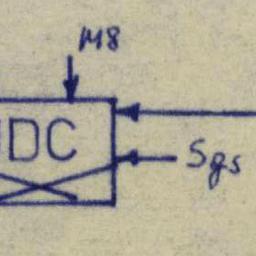 M8
DC
Sgs